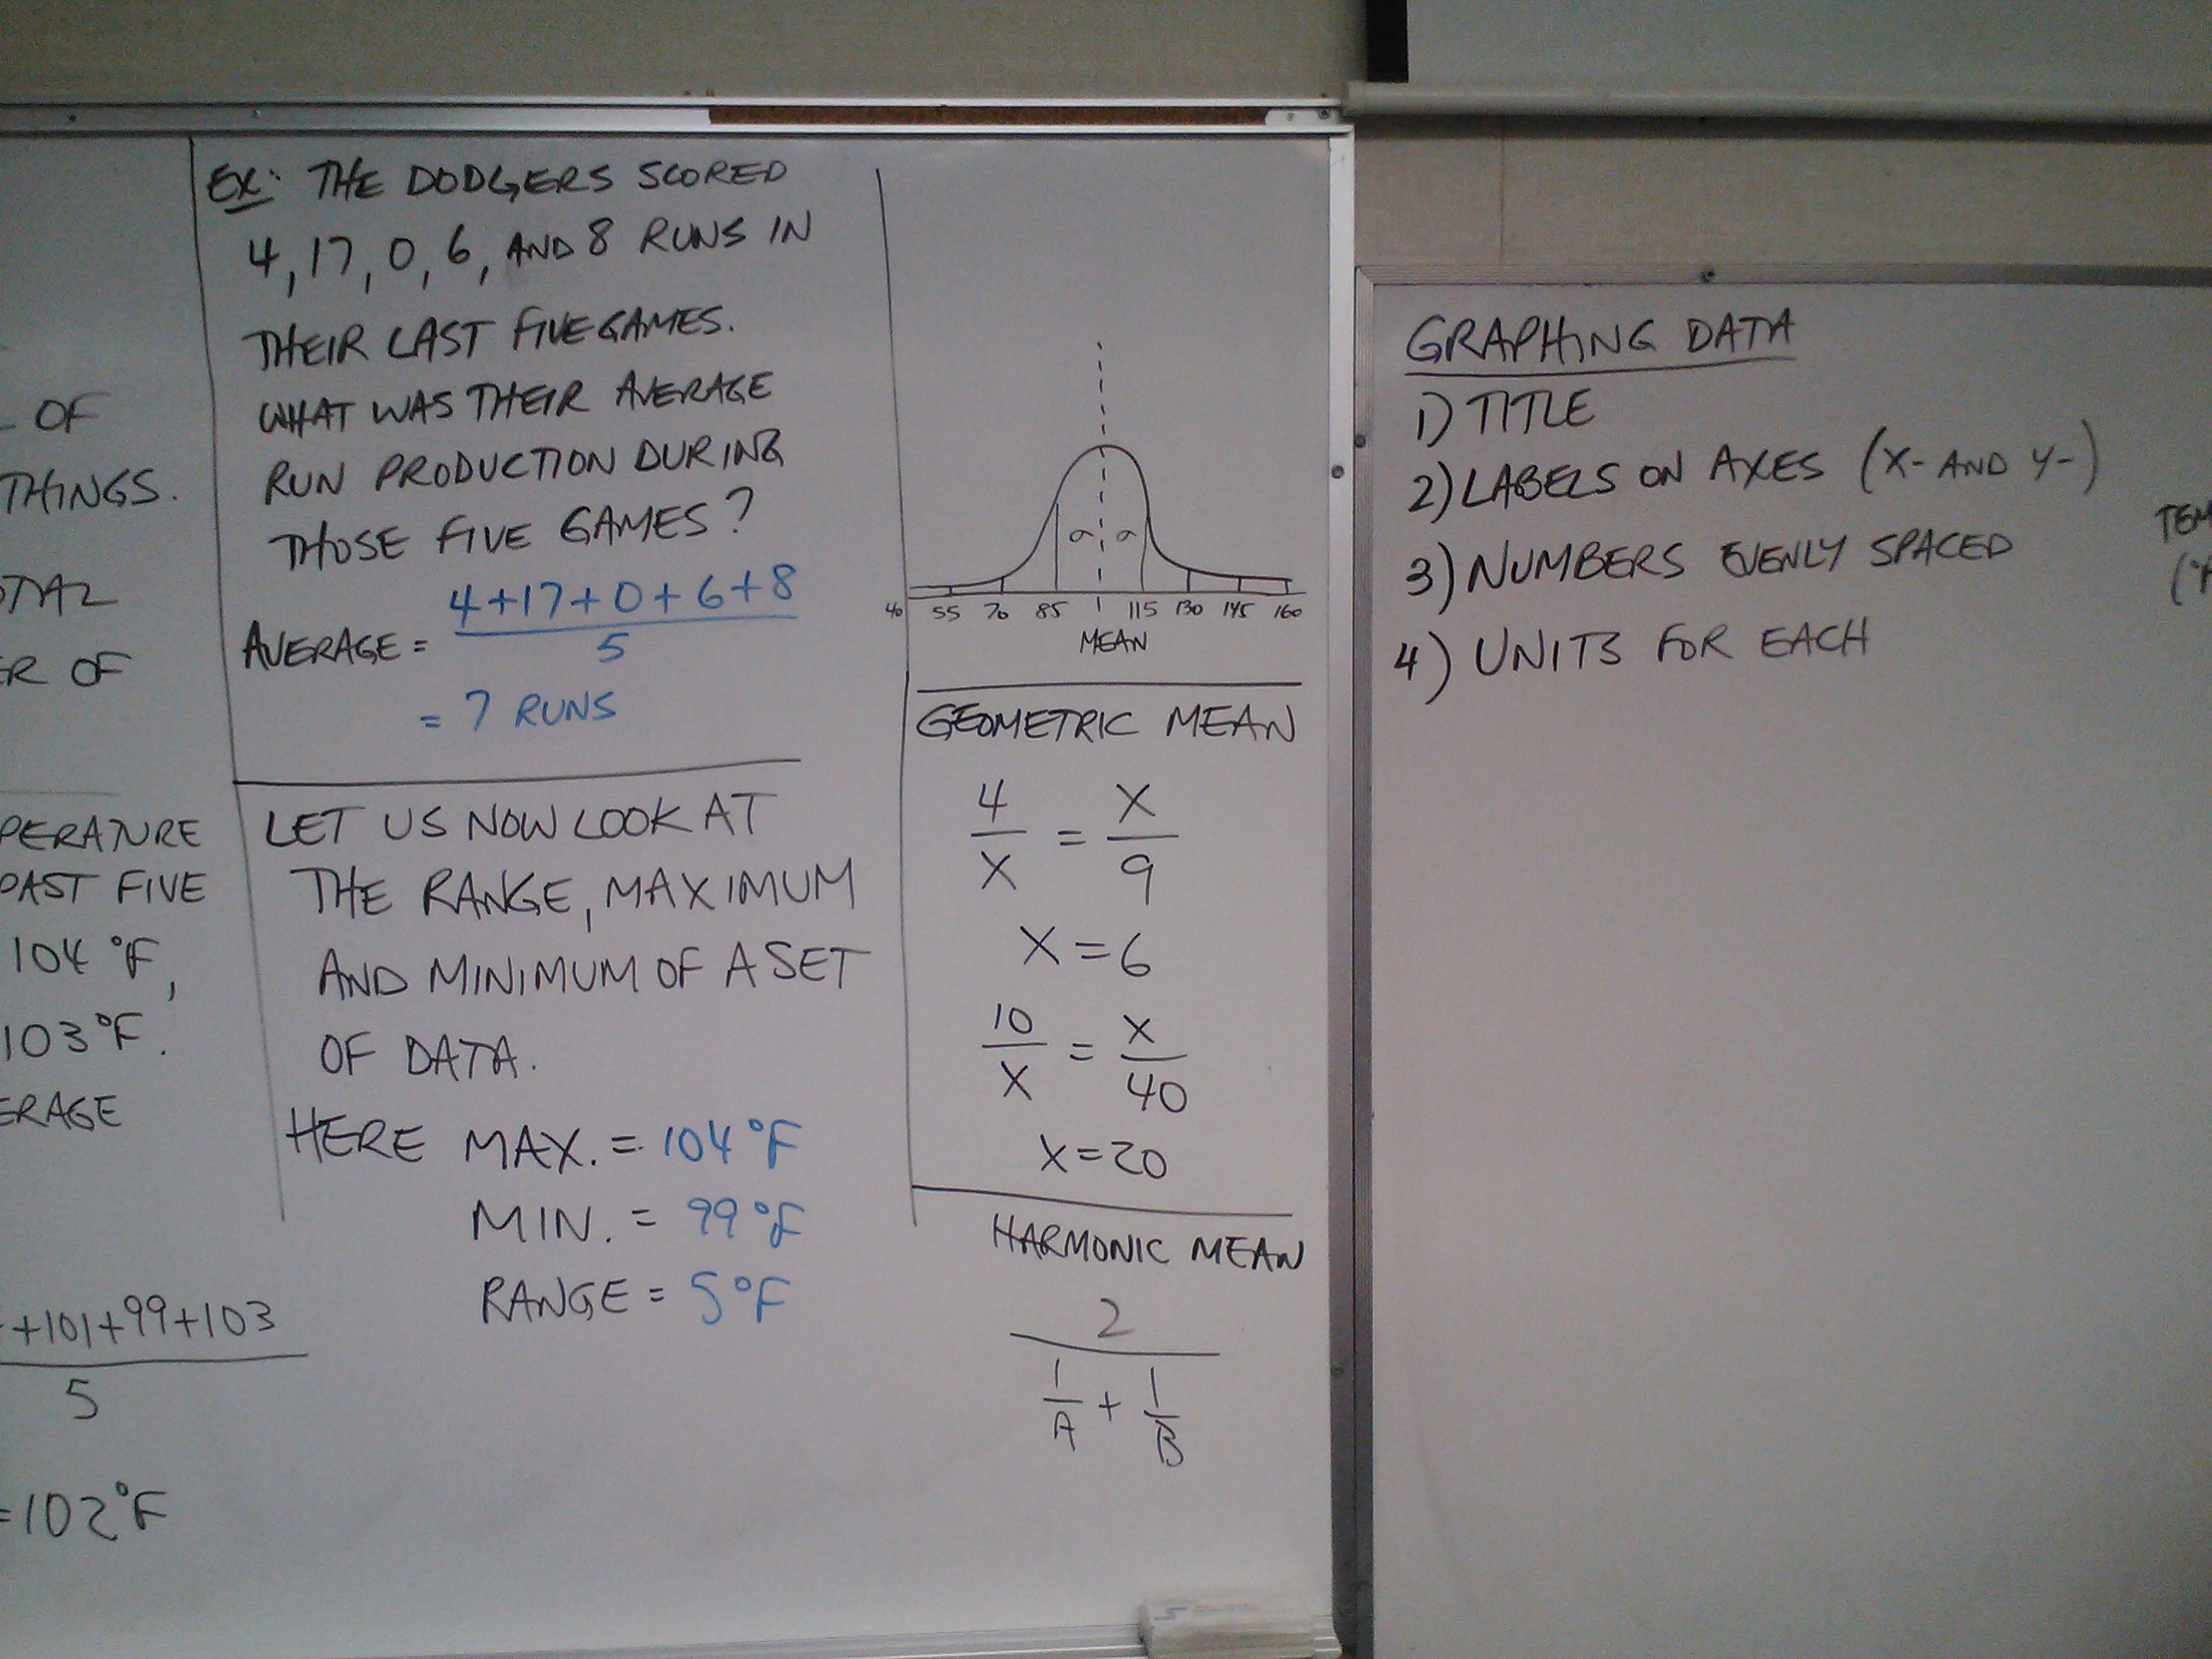 OF
THINGS.
ER OF
PERATURE
PAST FIVE
104°F,
103°F.
ERAGE
+101+99+103
5
=102°F
EX: THE DODGERS SCORED
4, 17, 0, 6, AND 8 RUNS IN
THEIR LAST FIVE GAMES.
WHAT WAS THEIR AVERAGE
RUN PRODUCTION DURING
THOSE FIVE GAMES?
4+17+0+6+8
AVERAGE =
5
= 7 RUNS
LET US NOW LOOK AT
THE RANGE, MAXIMUM
AND MINIMUM OF A SET
OF DATA.
HERE MAX. = 104°F
MIN. = 99°F
RANGE = 5°F
σ σ
40 55 70 85 115 130 145 160
MEAN
GEOMETRIC MEAN
4 X
= 
X 9
X=6
10 X
=
X 40
X=20
HARMONIC MEAN
2
1 1
+
A B
GRAPHING DATA
1) TITLE
2) LABELS ON AXES (X- AND Y-)
3) NUMBERS EVENLY SPACED
4) UNITS FOR EACH
TEM